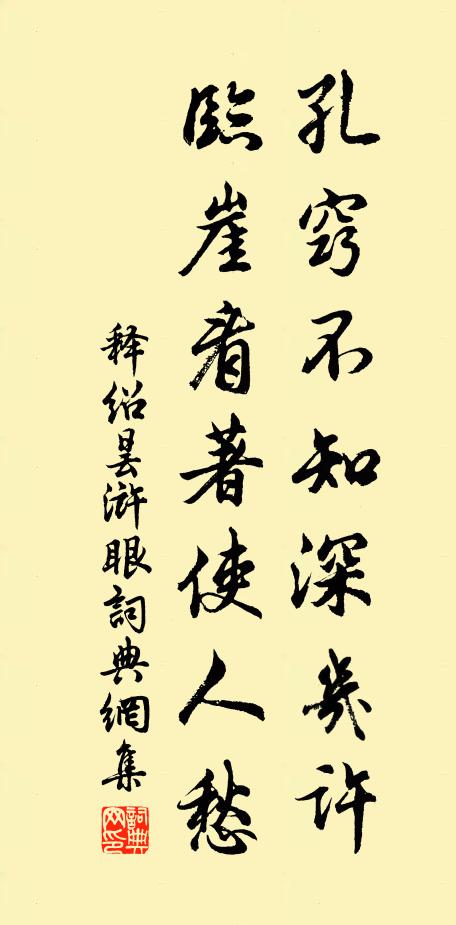 孔窍不知深几许
临崖看著使人愁
释绍昙浒眼詞典網集
詞典网印